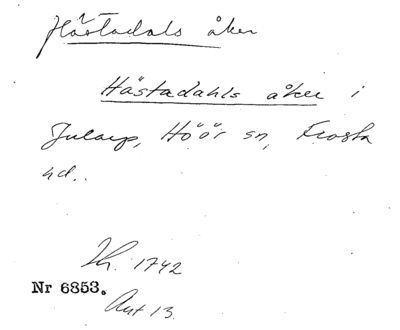 Hästadals åker
Hästadahls åker i
Jularp, Höör sn, Frosta
hd..
Lh. 1742
Nr 6853.
Ant 13.